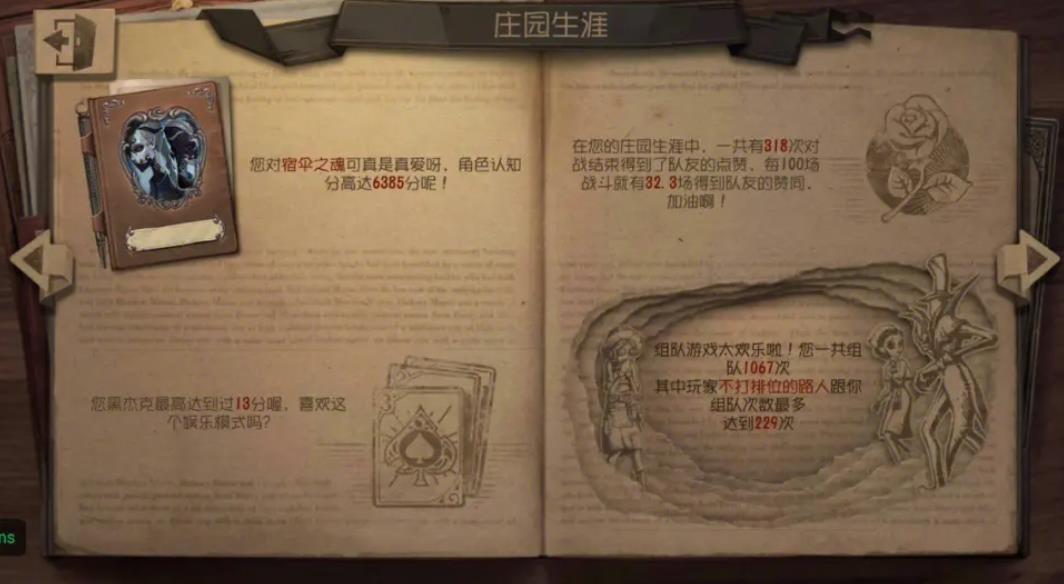 庄园生涯
您对宿伞之魂可真是真爱呀，角色认知
分高达6385分呢！
您黑杰克最高达到过13分喔，喜欢这
个娱乐模式吗？
在您的庄园生涯中，一共有318次对
战结束得到了队友的点赞，每100场
战斗就有32.3场得到队友的赞同，
加油啊！
组队游戏太欢乐啦！您一共组
队1067次
其中玩家不打排位的路人跟你
组队次数最多
达到229次
ns